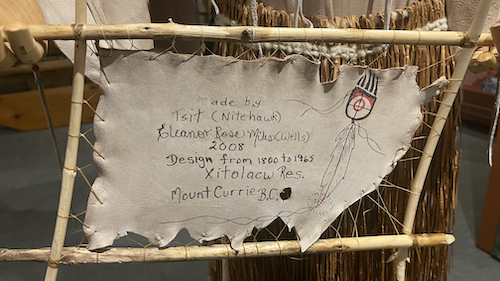 ade by
Tsit (Nitehawk)
Eleanor Rose Miles (Wells)
2008
Design from 1800 to 1965
Xitolacw Res.
Mount Currie B.C.